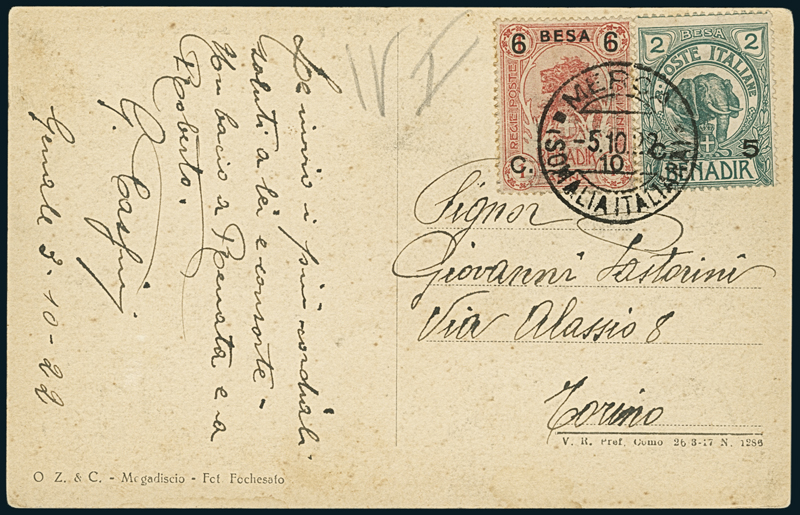 Le invio i più cordiali
saluti a lei e consorte -
Un bacio a Renata e a
Roberto.
G.
Genale 3-10-22
IV
6 BESA 6
REGIE POSTE
ITALIANE
C. 10
BENADIR
2 BESA 2
POSTE ITALIANE
C. 5
BENADIR
MERCA
-5.10.22
(SOMALIA ITALIANA)
Signor
Giovanni Pastorini
Via Alassio 8
Torino
V. R. Pref. Como 26-3-17 N. 1286
O Z. & C. - Mogadiscio - Fot Fochesato